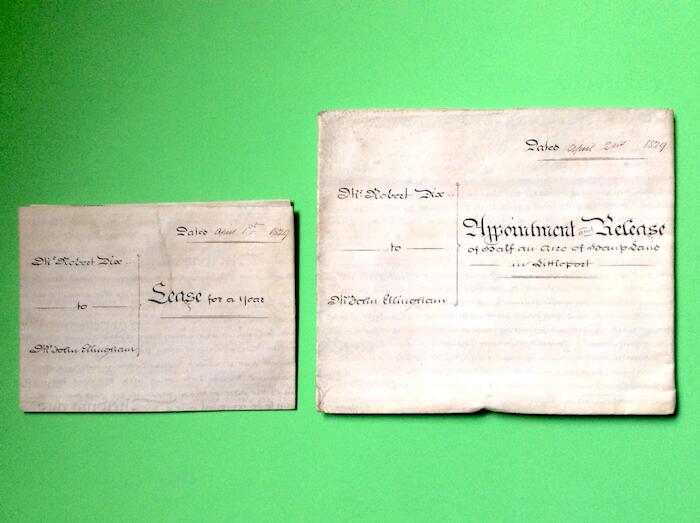 Dated April 1st 1829
Mr. Robert Dix
to
Lease for a Year
Mr. John Ellingham
Dated April 2nd 1829
Mr. Robert Dix
Appointment and Release
to
of Half an Acre of Hemp Land
in Littleport
Mr. John Ellingham